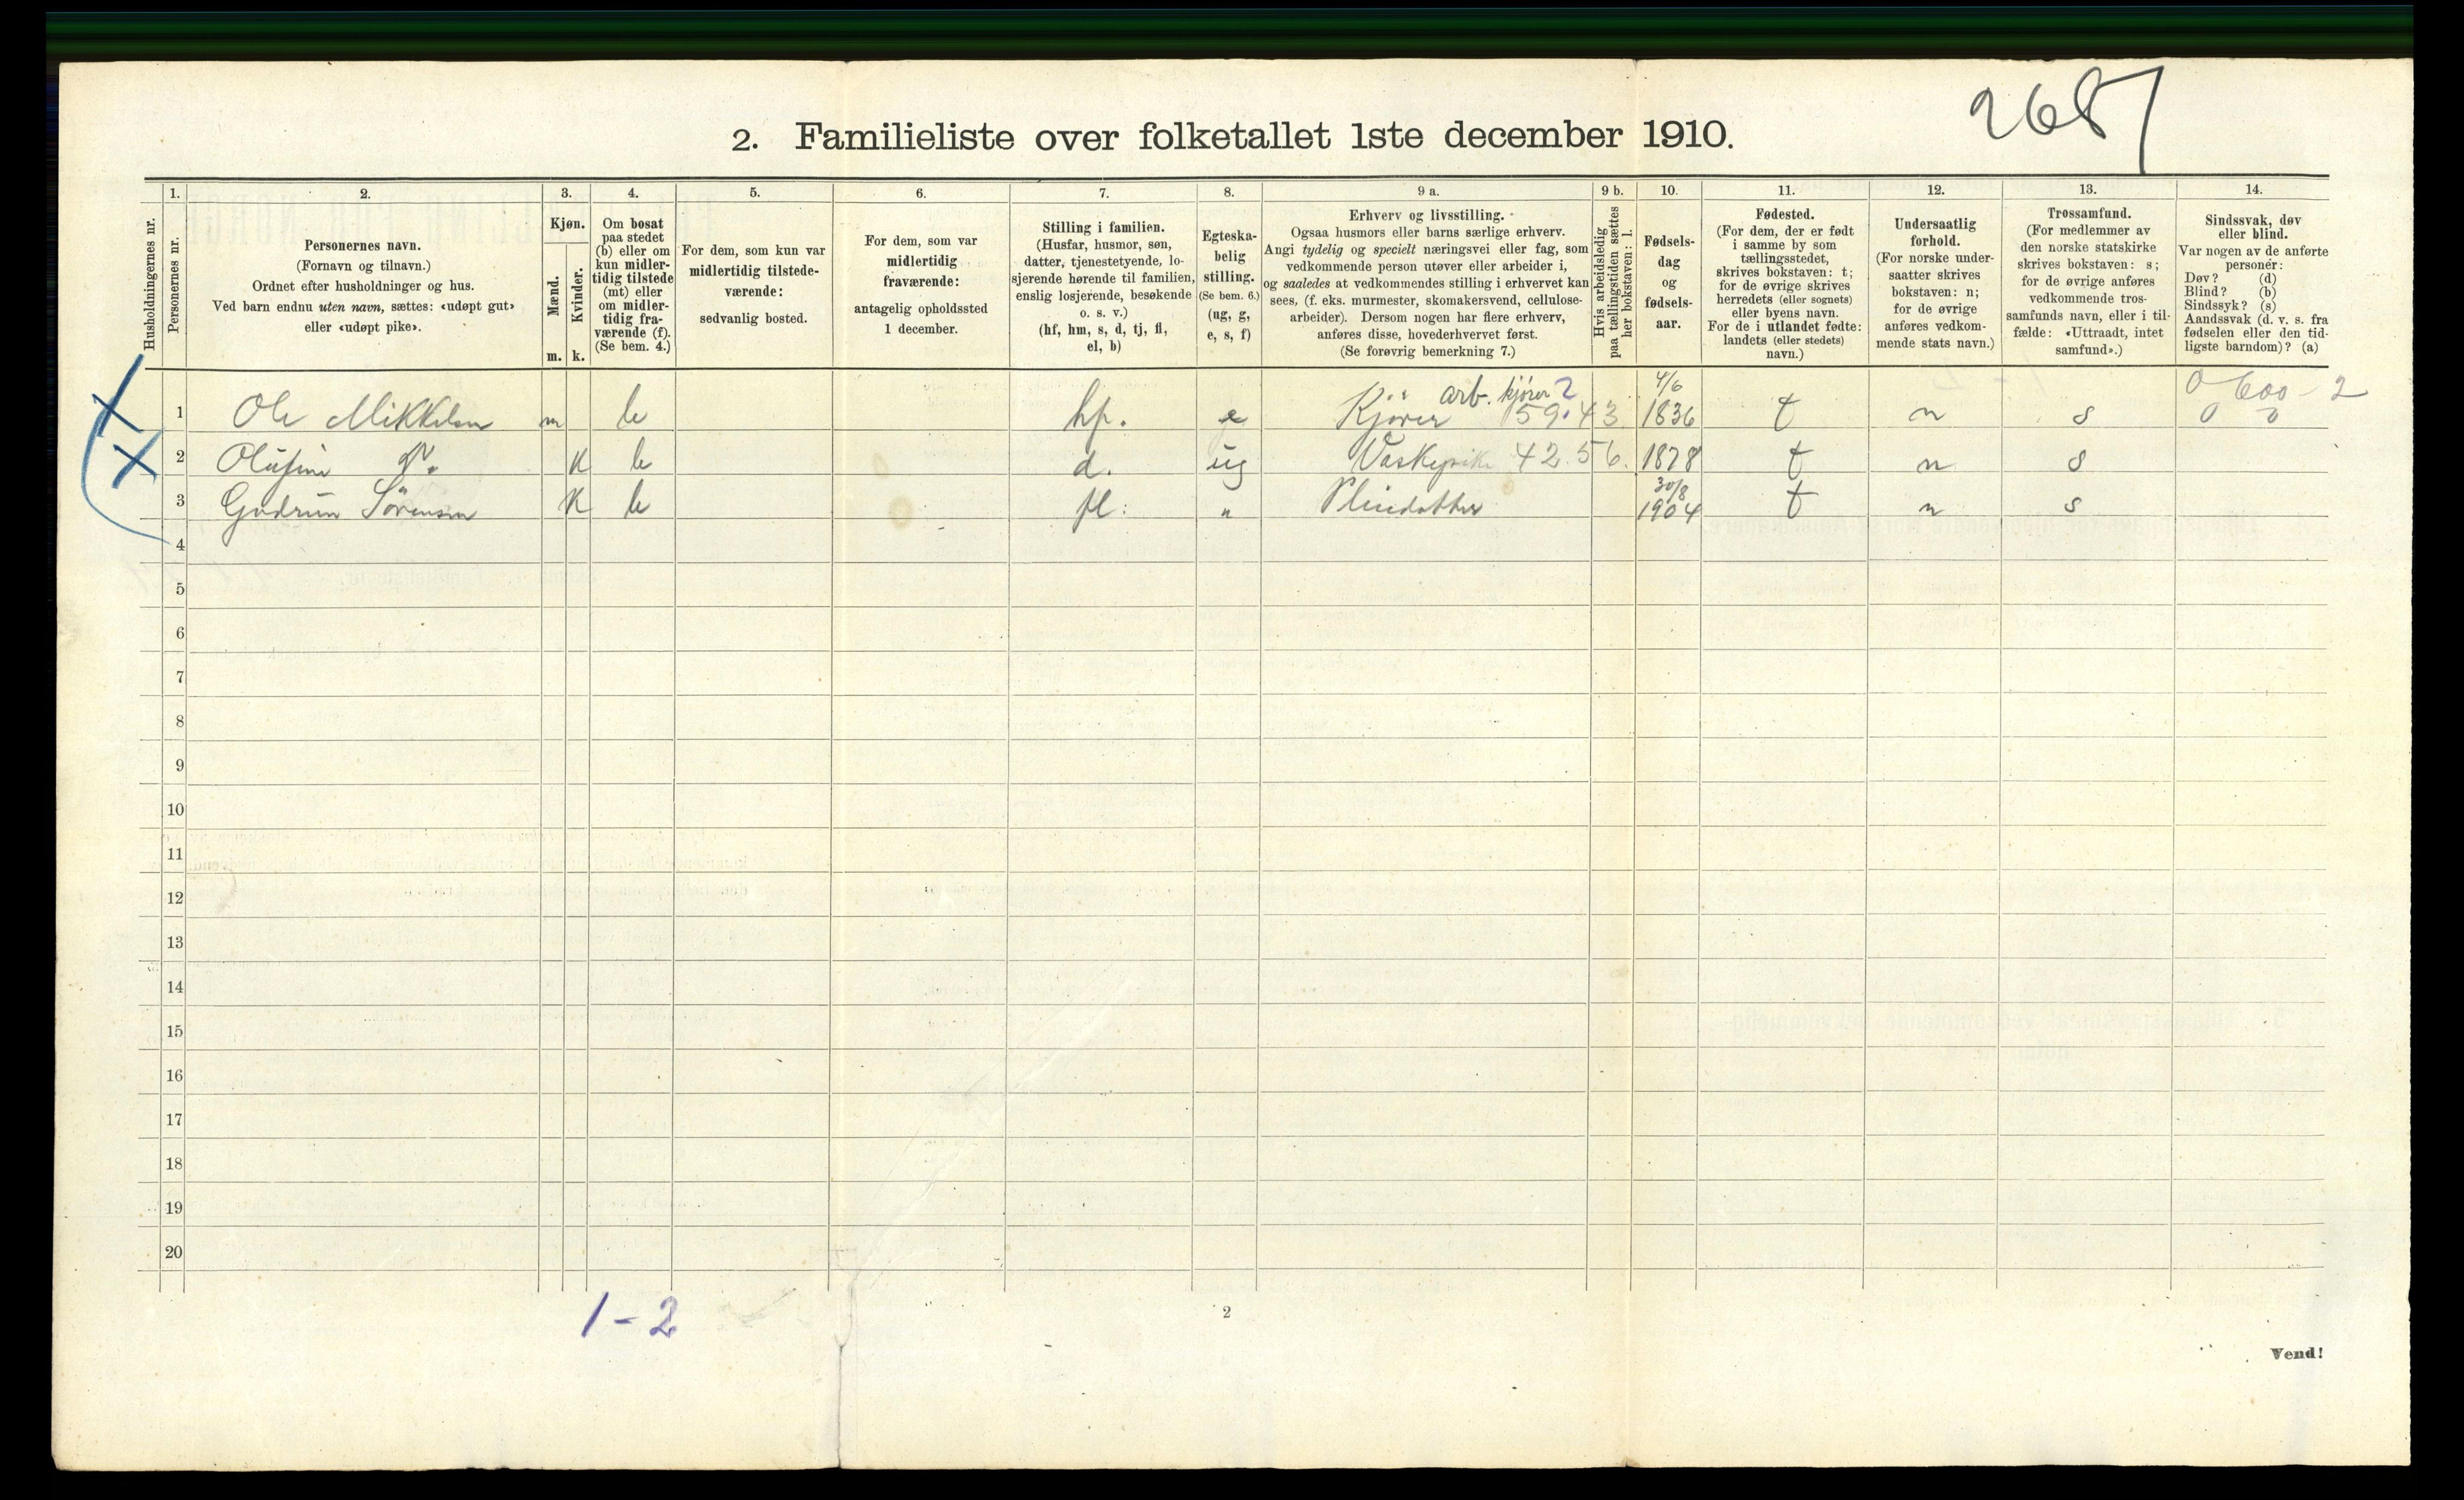 2687
2. Familieliste over folketallet 1ste december 1910.
Husholdningernes nr.
1.
Personernes nr.
2.
Personernes navn.
(Fornavn og tilnavn.)
Ordnet efter husholdninger og hus.
Ved barn endnu uten navn, sættes: «udøpt gut»
eller «udøpt pike».
3.
Kjøn.
Mænd.
Kvinder.
m. k.
4.
Om bosat
paa stedet
(b) eller om
kun midler-
tidig tilstede
(mt) eller
om midler-
tidig fra-
værende (f).
(Se bem. 4.)
5.
For dem, som kun var
midlertidig tilstede-
værende:
sedvanlig bosted.
6.
For dem, som var
midlertidig
fraværende:
antagelig opholdssted
1 december.
7.
Stilling i familien.
(Husfar, husmor, søn,
datter, tjenestetyende, lo-
sjerende hørende til familien,
enslig losjerende, besøkende
o. s. v.)
(hf, hm, s, d, tj, fl,
el, b)
8.
Egteska-
belig
stilling.
(Se bem. 6.)
(ug, g,
e, s, f)
9 a.
Erhverv og livsstilling.
Ogsaa husmors eller barns særlige erhverv.
Angi tydelig og specielt næringsvei eller fag, som
vedkommende person utøver eller arbeider i,
og saaledes at vedkommendes stilling i erhvervet kan
sees, (f. eks. murmester, skomakersvend, cellulose-
arbeider). Dersom nogen har flere erhverv,
anføres disse, hovederhvervet først.
(Se forøvrig bemerkning 7.)
9 b.
Hvis arbeidsledig
paa tællingstiden sættes
her bokstaven: l.
10.
Fødsels-
dag
og
fødsels-
aar.
11.
Fødested.
(For dem, der er født
i samme by som
tællingsstedet,
skrives bokstaven: t;
for de øvrige skrives
herredets (eller sognets)
eller byens navn.
For de i utlandet fødte:
landets (eller stedets)
navn.)
12.
Undersaatlig
forhold.
(For norske under-
saatter skrives
bokstaven: n;
for de øvrige
anføres vedkom-
mende stats navn.)
13.
Trossamfund.
(For medlemmer av
den norske statskirke
skrives bokstaven: s;
for de øvrige anføres
vedkommende tros-
samfunds navn, eller i til-
fælde: «Uttraadt, intet
samfund».)
14.
Sindssvak, døv
eller blind.
Var nogen av de anførte
personer:
Døv? (d)
Blind? (b)
Sindssyk? (s)
Aandssvak (d. v. s. fra
fødselen eller den tid-
ligste barndom)? (a)
arb. kjører 2 4/6 0 600-2
1 Ole Mikkelsen m b hf. e Kjører 59.43 1836 t n s 0 0
2 Olufine K b d. ug Vaskepike 42.56. 1878 t n s
30/8
3 Gudrun Sörensen K b fl: " Pleiedatter 1904 t n s
4
5
6
7
8
9
10
11
12
13
14
15
16
17
18
19
20
1-2
2
Vend!